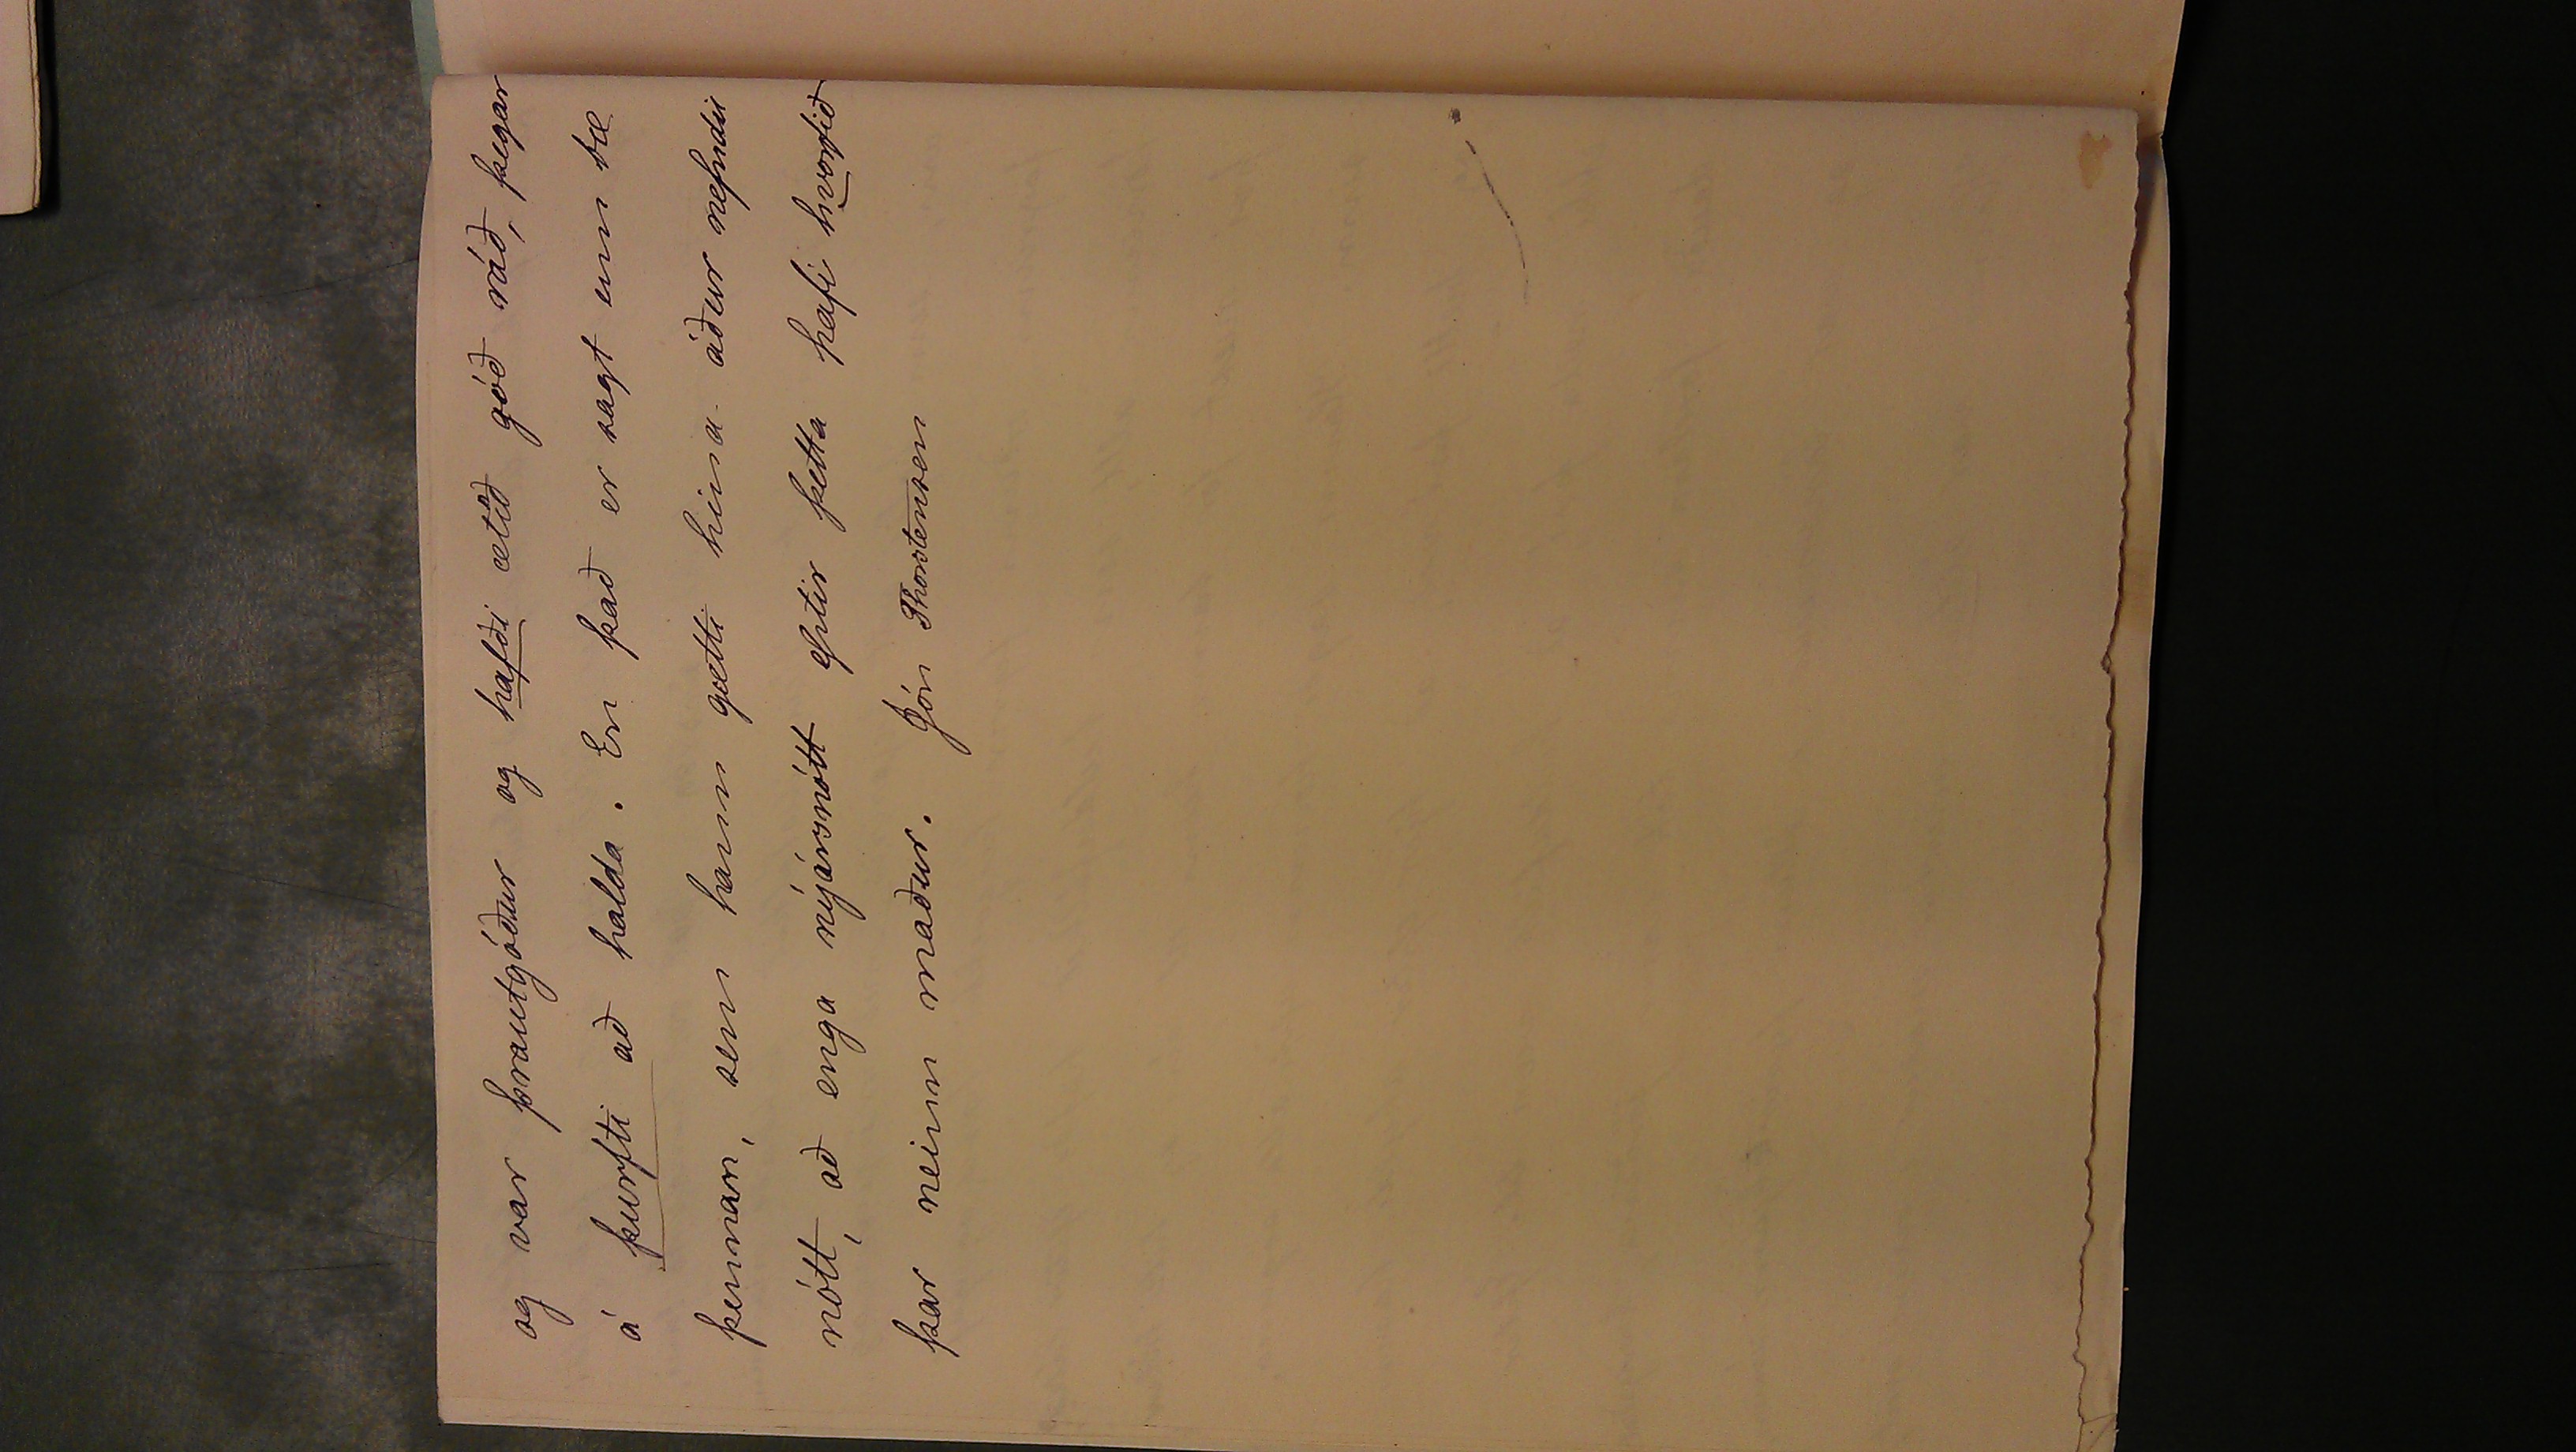 og var þrautgóður og hafði ætíð góð ráð, þegar
á þurfti að halda. En það er sagt um bæ
þennan, sem hann gætti hina áður nefndu
nótt, að enga nýársnótt eptir þetta hafi hvorfið
þar neinn maður. Jón Thorstensen